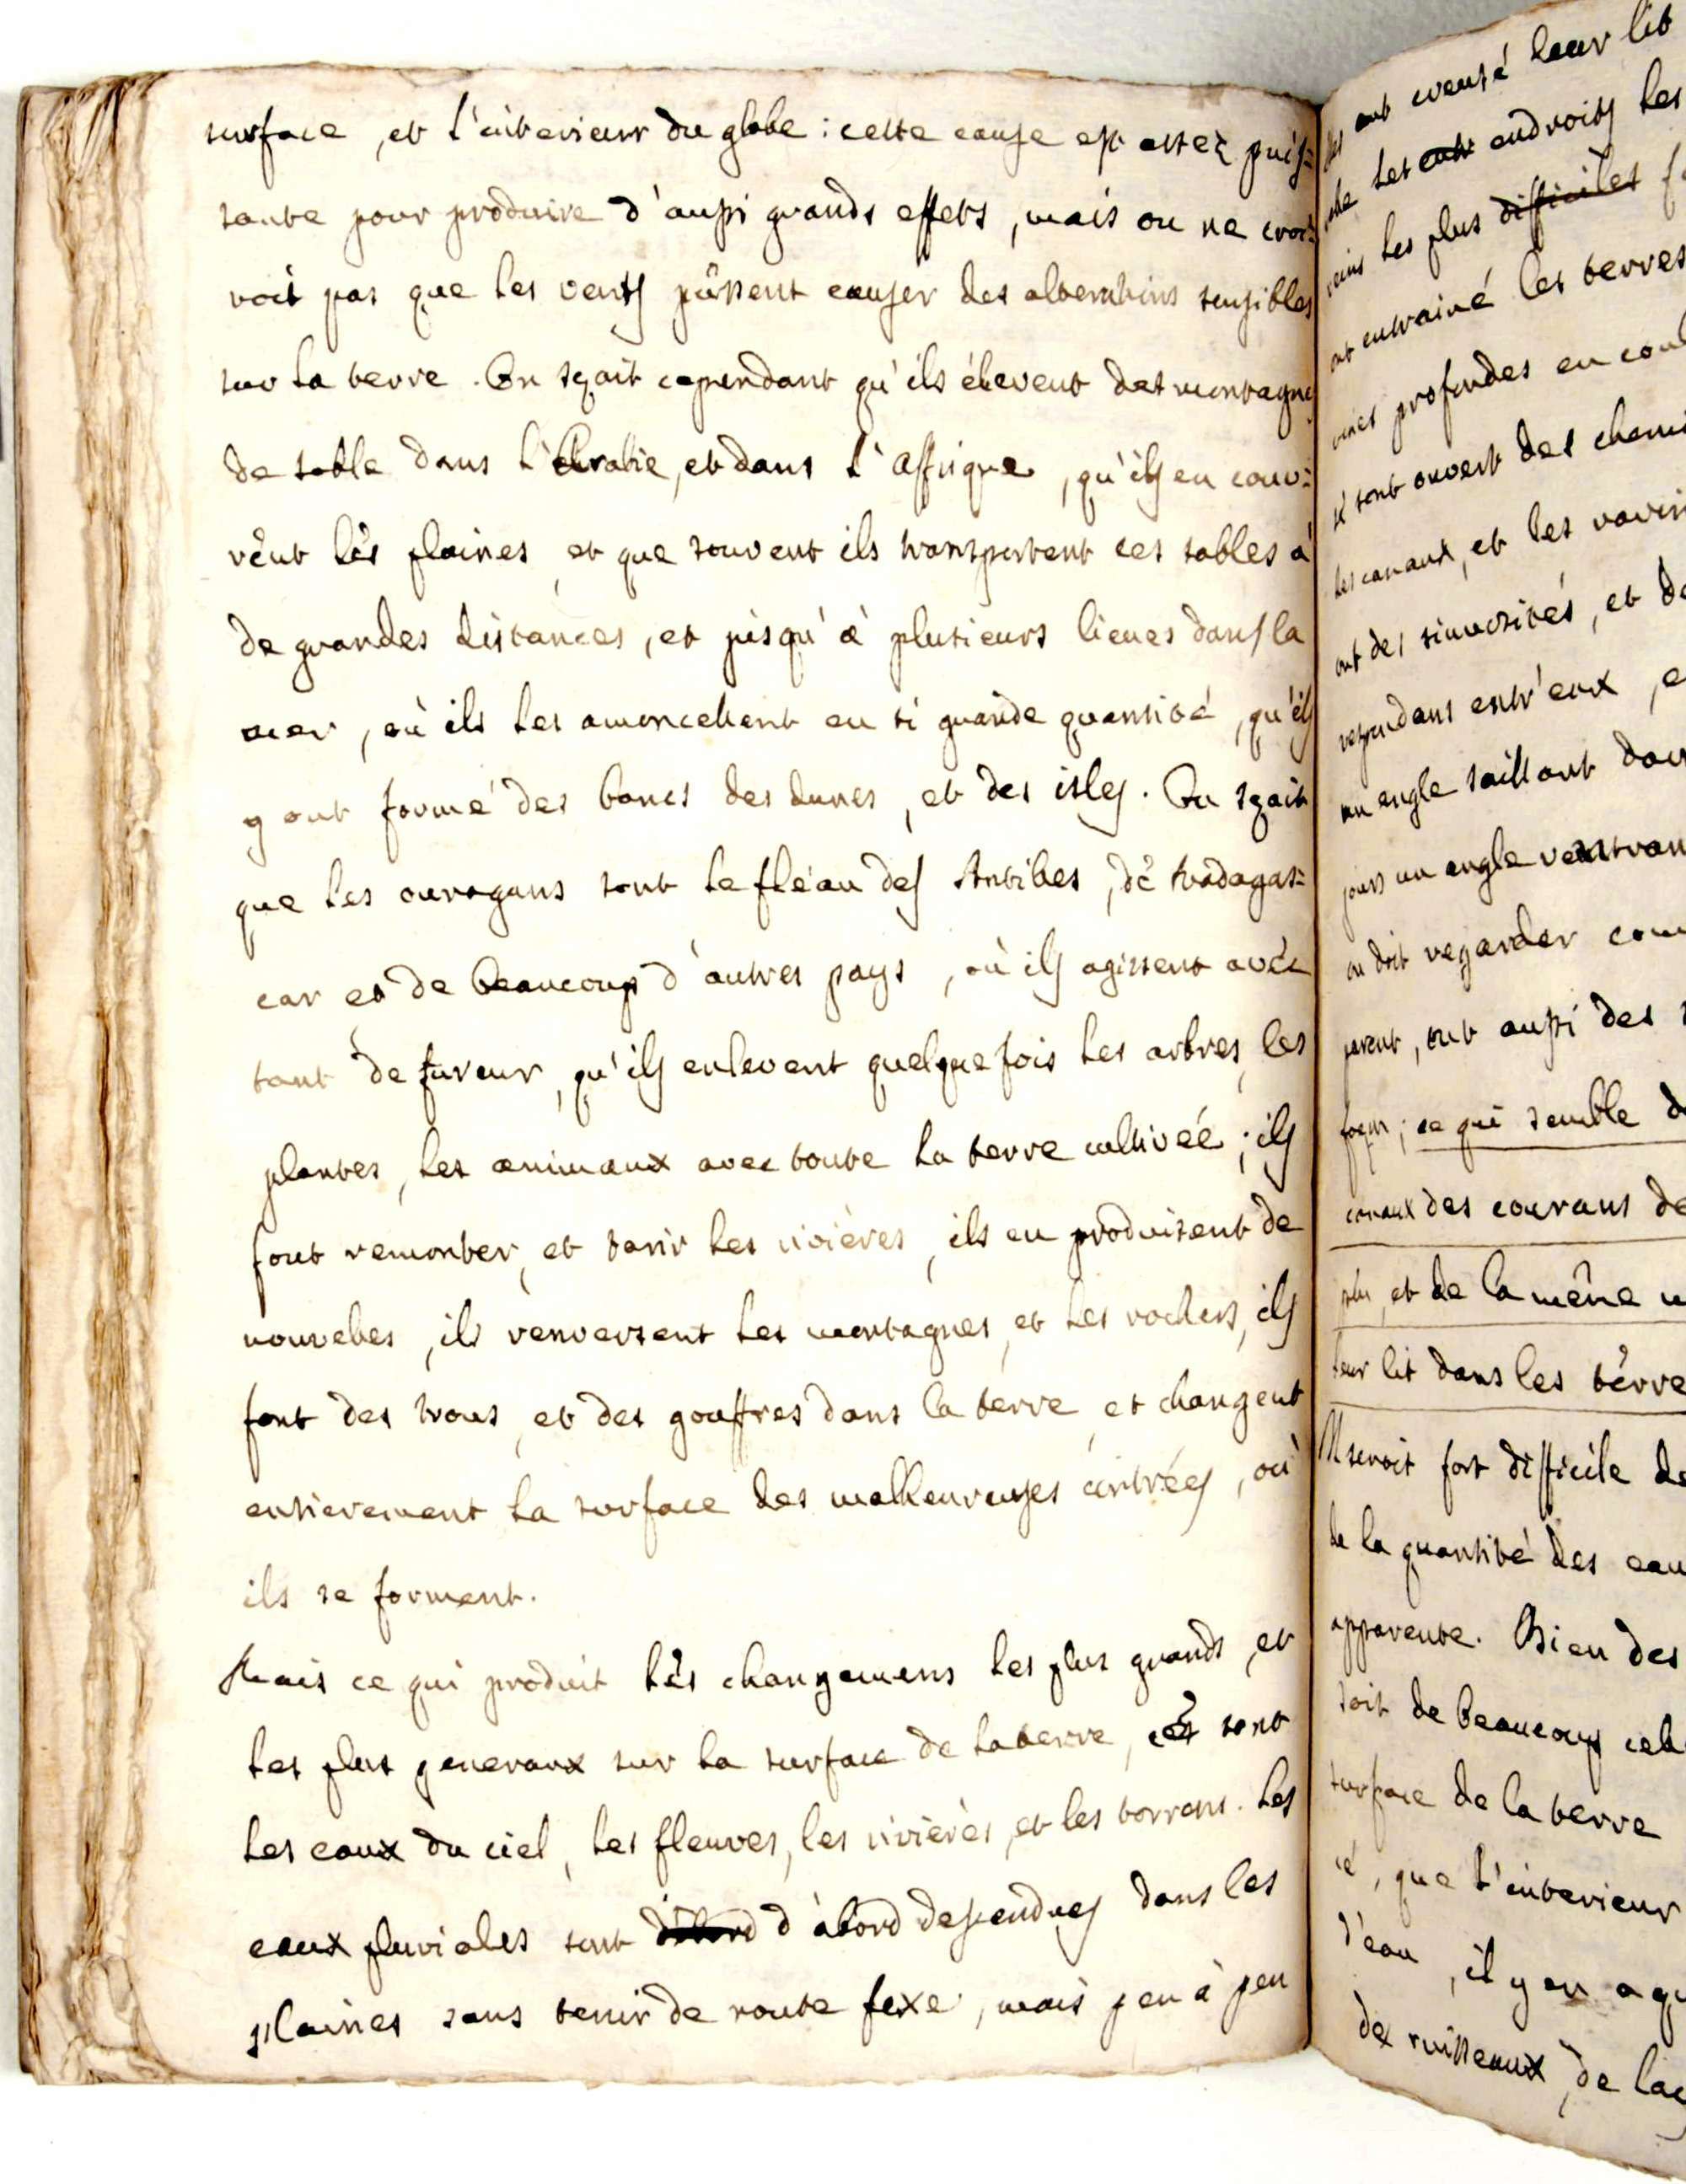 surface, et l'interieur du globe : cette cause est assez puis=
sante pour produire d'aussi grands effets, mais on ne croi=
roit pas que les vents pûssent causer des alterations sensibles
sur la terre. On sçait cependant qu'ils élevent des montagnes
de sable dans l'Arabie, et dans l'Affrique, qu'ils en couv=
rent les plaines, et que souvent ils transportent ces sables à
de grandes distances, et jusqu'à plusieurs lieues dans la
mer, où ils les amoncellent en si grande quantité, qu'ils
y ont formé des bancs des dunes, et des isles. On sçait
que les ouragans sont le fléau des Antilles, de Madagas=
car et de beaucoup d'autres pays, où ils agissent avec
tant de fureur, qu'ils enlevent quelque fois les arbres, les
plantes, les animaux avec toute la terre cultivée ; ils
font remonter, et tarir les rivières, ils en produisent de
nouvelles, ils renversent les montagnes, et les rochers, ils
font des trous, et des gouffres dans la terre, et changent
entierement la surface des malheureuses contrées, où
ils se forment.
Mais ce qui produit les changemens les plus grands, et
les plus generaux sur la surface de la terre, ces sont
les eaux du ciel, les fleuves, les rivières, et les torrens. Les
eaux pluviales sont d'abord d'abord descendues dans les
plaines sans tenir de route fixe, mais peu à peu
ont creusé leur lit
les endroits les
les plus difficiles
ont entrainé les terres
profondes en coul
se sont ouvert des chemi
les canaux, et les ravin
ont des sinuosités, et de
respondans entr'eux, e
un angle saillant dan
jours un angle rentran
on doit regarder com
ont aussi des
façon ; ce qui semble d
canaux des courans de
et de la même m
leur lit dans les terre
Il seroit fort difficile de
de la quantité des eau
apparente. Bien des
soit de beaucoup cel
surface de la terre
cé, que l'interieur
d'eau, il y en a qu
de ruisseaux, de lac